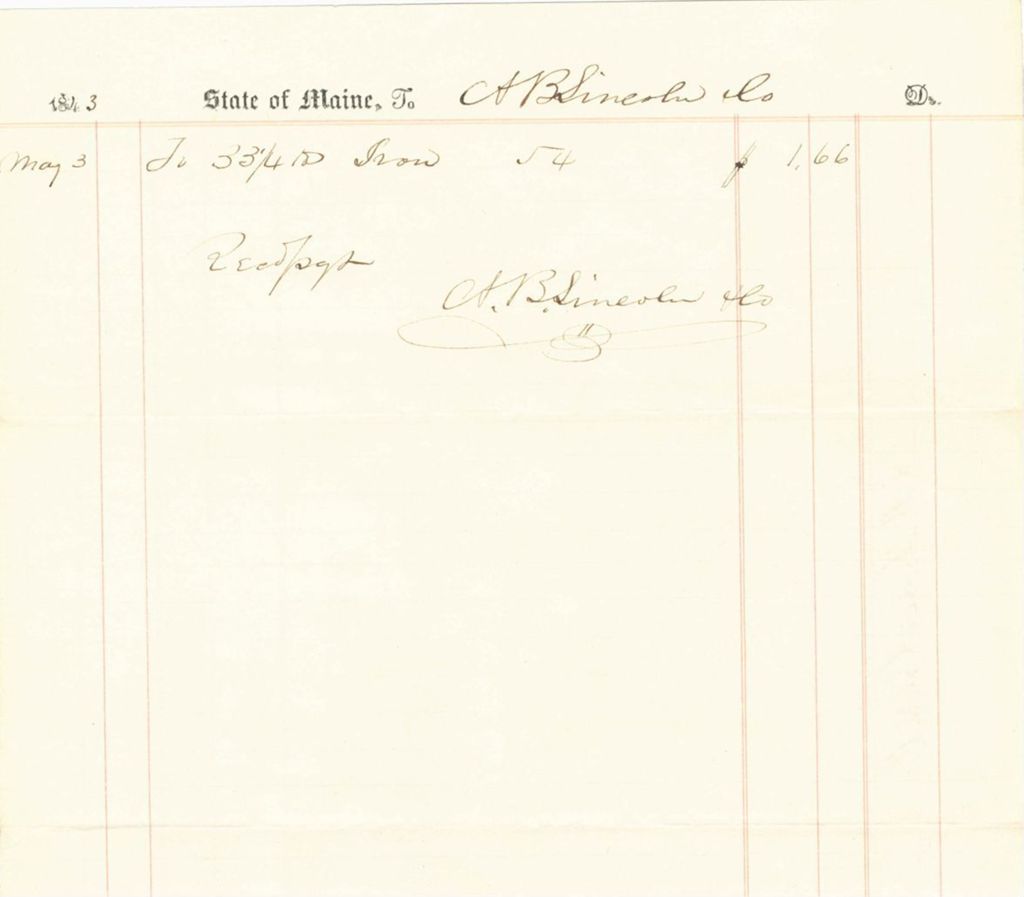 1843 State of Maine, To A B Lincoln & Co Dr.
May 3 To 33 1/4 lb Iron 54 $ 1,66
Recd pyt
A. B. Lincoln & Co